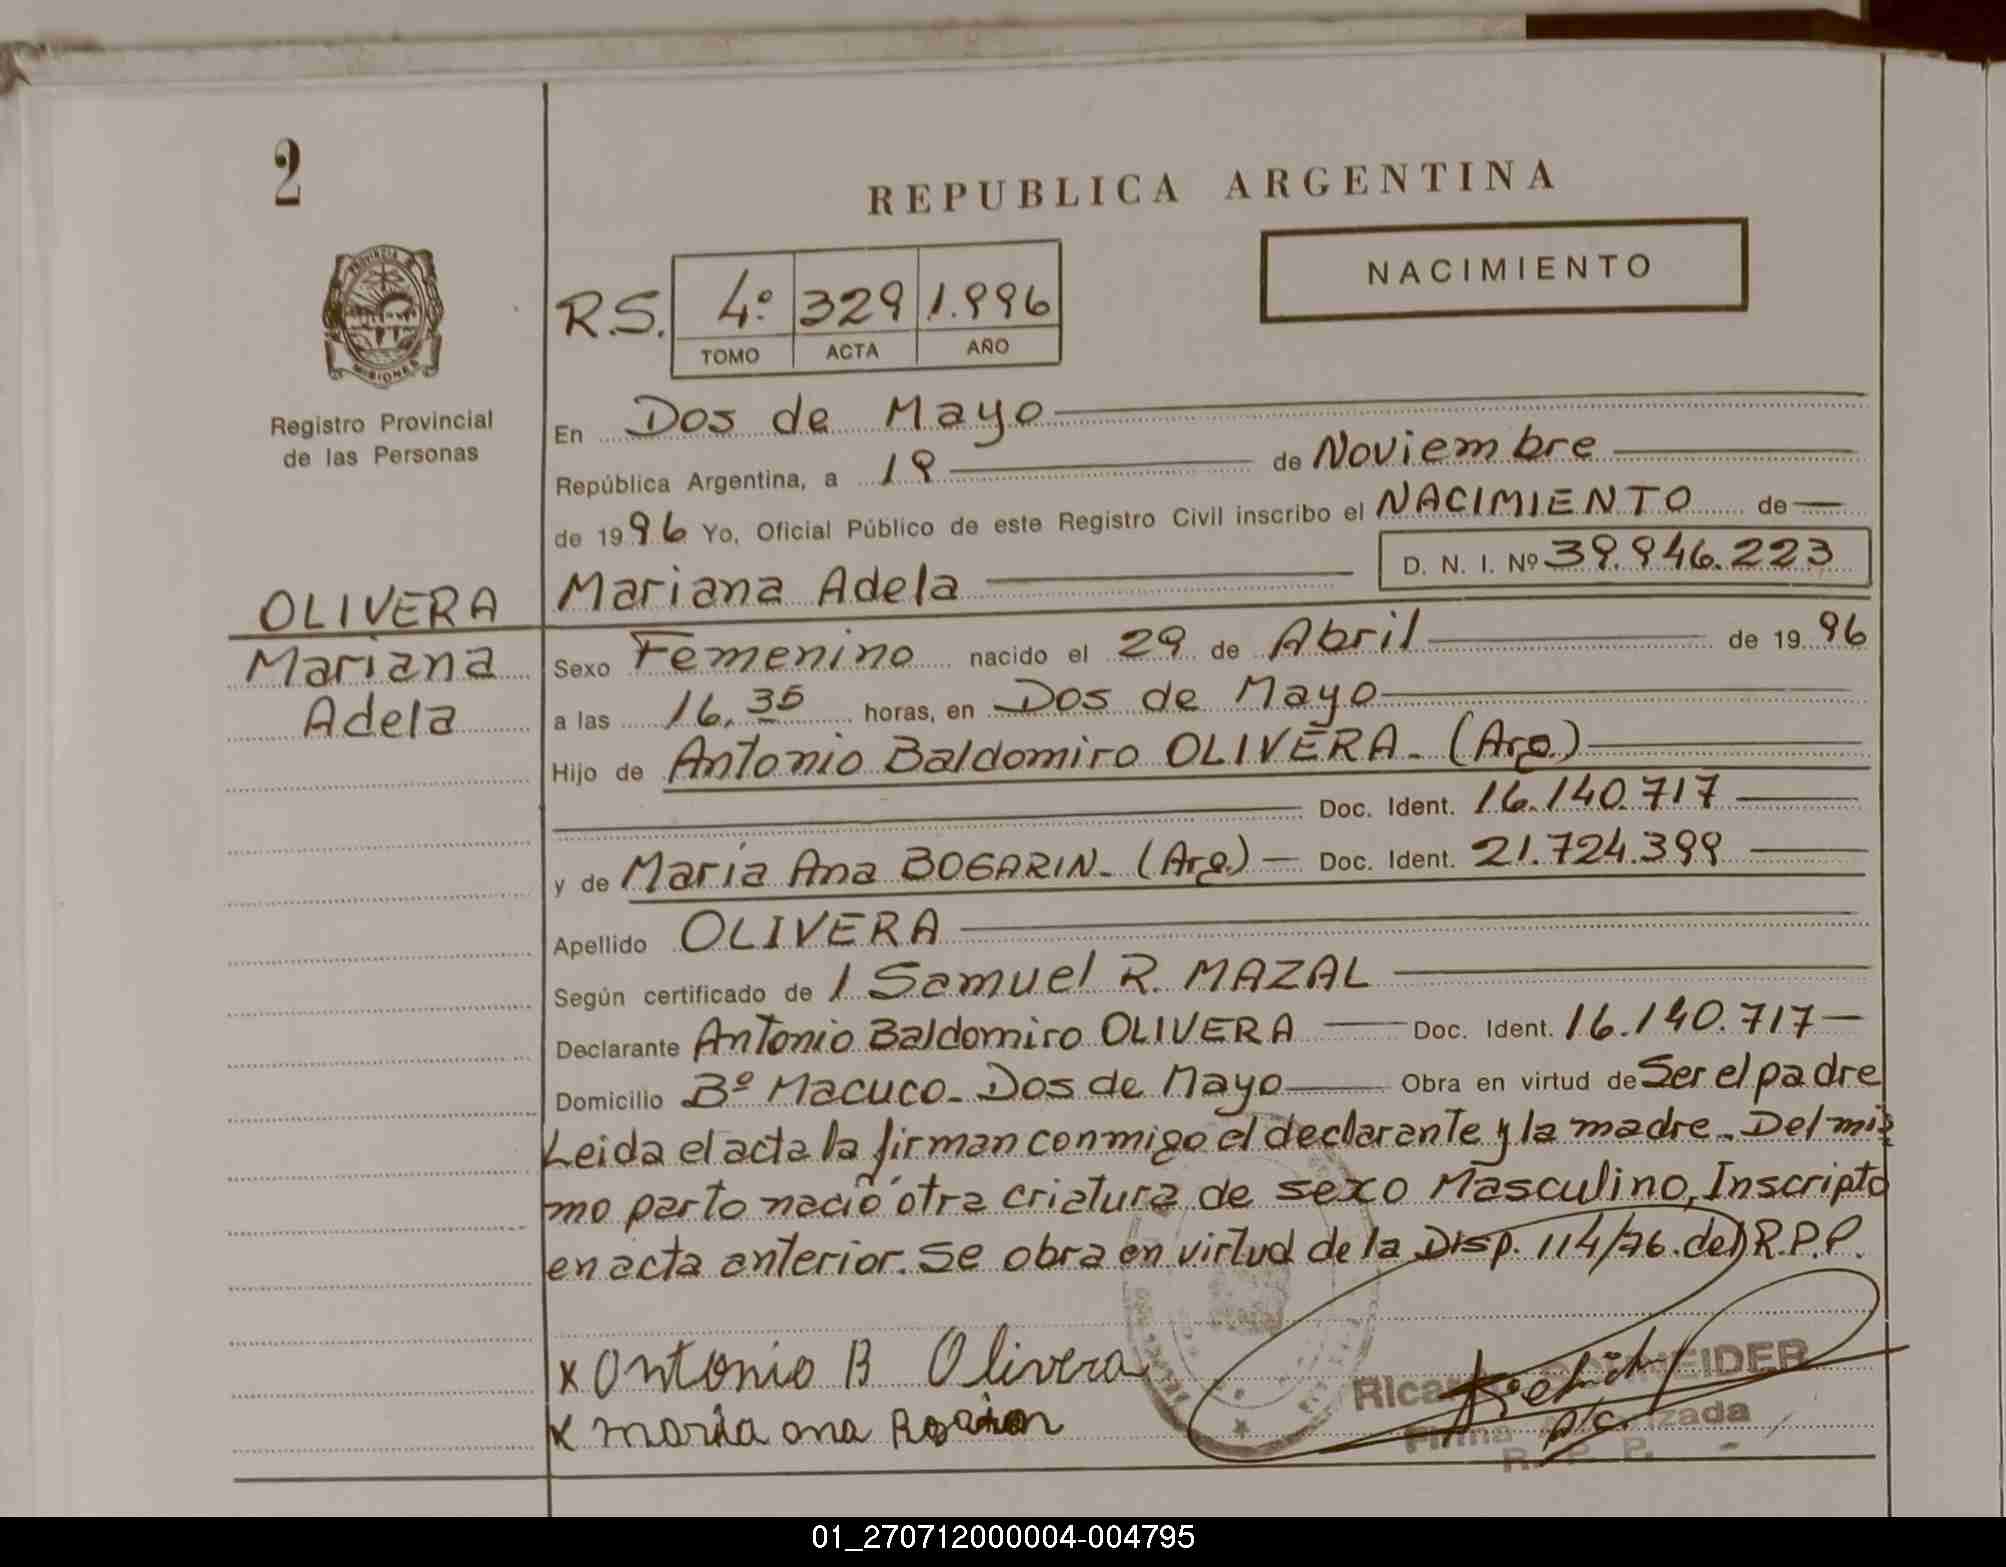 2
REPUBLICA ARGENTINA
NACIMIENTO
R.S. 4º 329 1.996
TOMO ACTA AÑO
PROVINCIA DE
MISIONES
Registro Provincial
de las Personas
En Dos de Mayo
República Argentina, a 19 de Noviembre
de 1996 Yo, Oficial Público de este Registro Civil inscribo el NACIMIENTO de
D. N. I. Nº 39.946.223
OLIVERA Mariana Adela
Mariana
Adela
Sexo Femenino nacido el 29 de Abril de 1996
a las 16,35 horas, en Dos de Mayo
Hijo de Antonio Baldomiro OLIVERA. (Arg.)
Doc. Ident. 16.140.717
y de María Ana BOGARIN. (Arg.) Doc. Ident. 21.724.399
Apellido OLIVERA
Según certificado de 1 Samuel R. MAZAL
Declarante Antonio Baldomiro OLIVERA Doc. Ident. 16.140.717
Domicilio Bº Macuco. Dos de Mayo Obra en virtud de Ser el padre
Leida el acta la firman conmigo el declarante y la madre. Del mis
mo parto nació otra criatura de sexo Masculino, Inscripto
en acta anterior. Se obra en virtud de la Disp. 114/76. del R.P.P.
x Antonio B Olivera
x maria ana
Ricardo SCHNEIDER
Firma Autorizada
R. P. P.
01_270712000004-004795